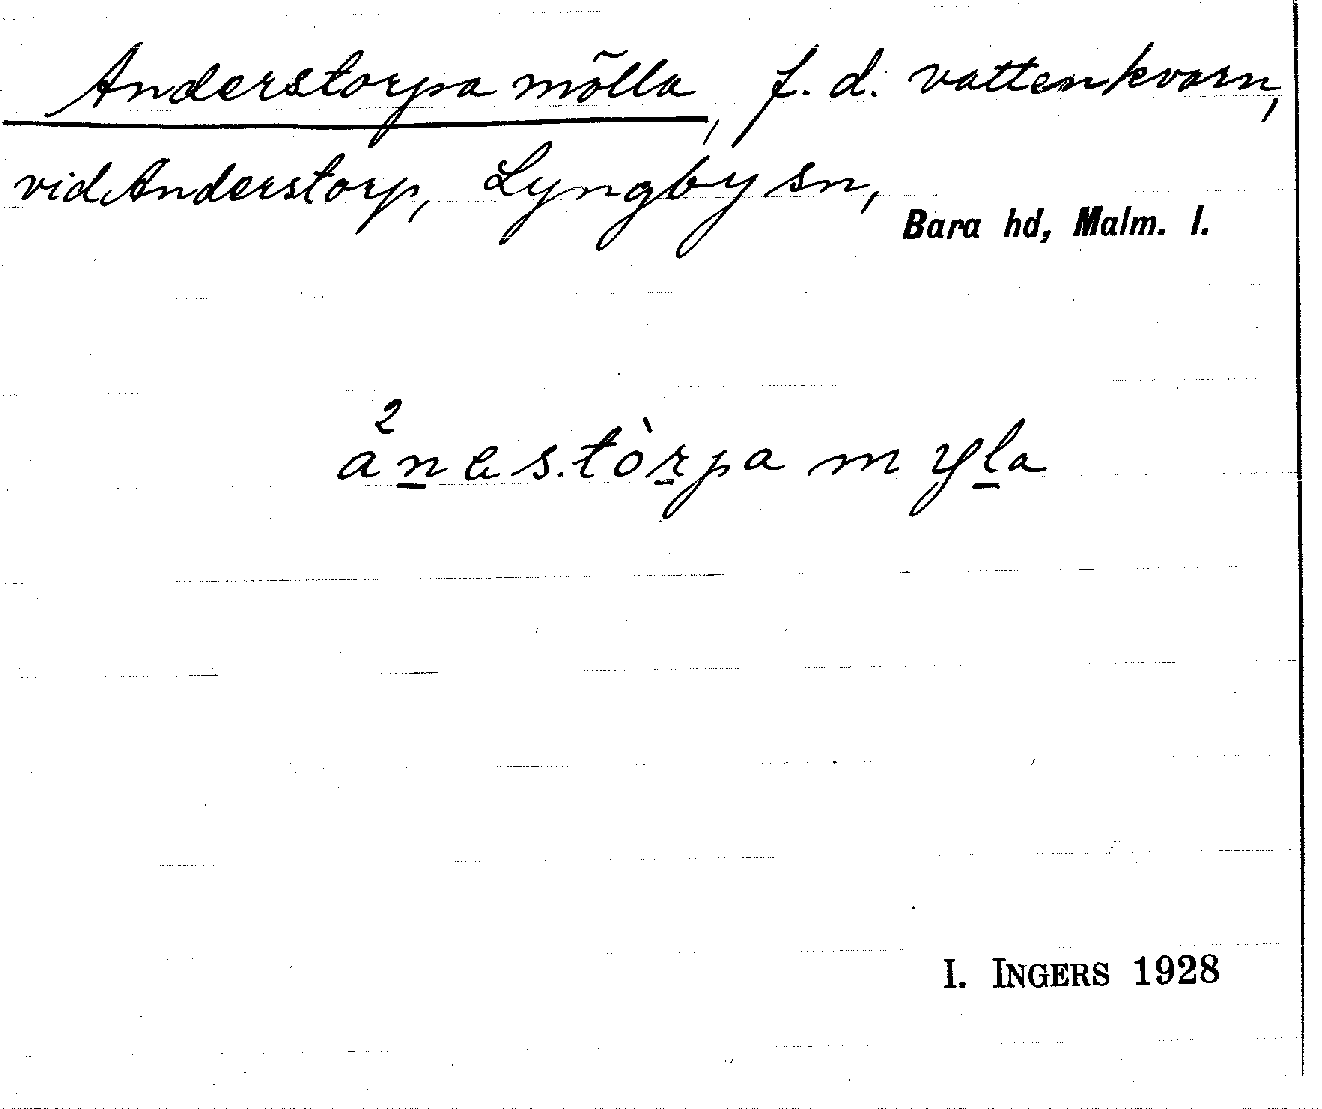 Anderstorpa mölla, f. d. vattenkvarn,
vid Anderstorp, Lyngby sn,
Bara hd, Malm. l.
a²nestòrpa myla
I. INGERS 1928